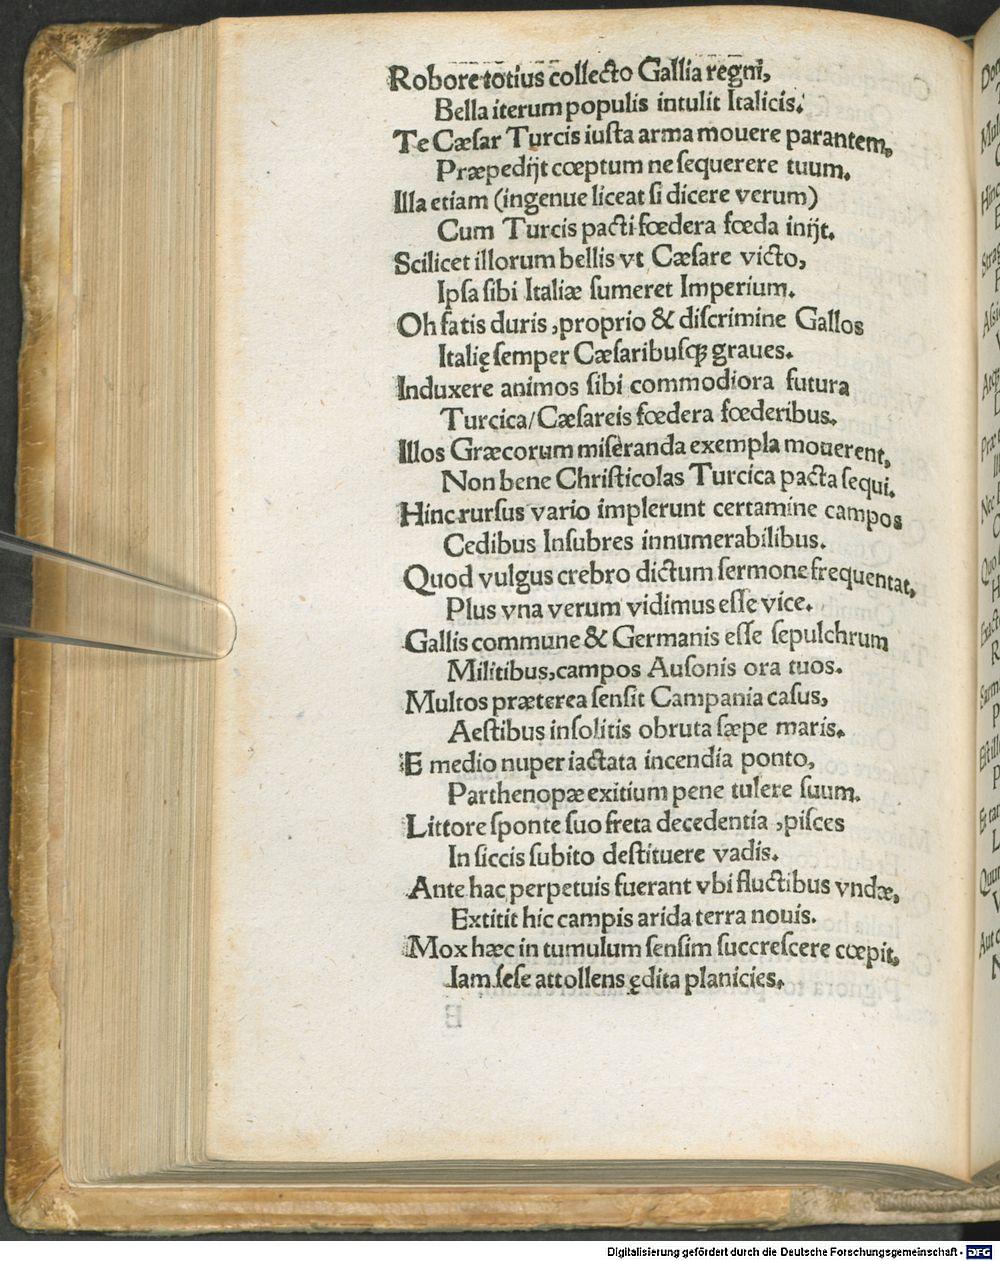 Robore totius collecto Gallia regni,
Bella iterum populis intulit Italicis.
Te Cæſar Turcis iuſta arma mouere parantem,
Præpedijt cœptum ne ſequerere tuum.
Illa etiam (ingenue liceat ſi dicere verum)
Cum Turcis pacti fœdera fœda inijt.
Scilicet illorum bellis vt Cæſare victo,
Ipſa ſibi Italiæ ſumeret Imperium.
Oh fatis duris, proprio & diſcrimine Gallos
Italię ſemper Cæſaribuſqꝫ graues.
Induxere animos ſibi commodiora futura
Turcica/Cæſareis fœdera fœderibus.
Illos Græcorum miſeranda exempla mouerent,
Non bene Chriſticolas Turcica pacta ſequi.
Hinc rurſus vario implerunt certamine campos
Cedibus Inſubres innumerabilibus.
Quod vulgus crebro dictum ſermone frequentat,
Plus vna verum vidimus eſſe vice.
Gallis commune & Germanis eſſe ſepulchrum
Militibus, campos Auſonis ora tuos.
Multos præterea ſenſit Campania caſus,
Aeſtibus inſolitis obruta ſæpe maris.
E medio nuper iactata incendia ponto,
Parthenopæ exitium pene tulere ſuum.
Littore ſponte ſuo freta decedentia, piſces
In ſiccis ſubito deſtituere vadis.
Ante hac perpetuis fuerant vbi fluctibus vndæ,
Extitit hic campis arida terra nouis.
Mox hæc in tumulum ſenſim ſuccreſcere cœpit,
Iam ſeſe attollens ędita planicies.
Digitalisierung gefördert durch die Deutsche Forschungsgemeinschaft - DFG